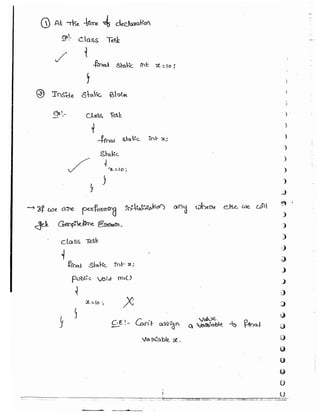 ① At the time of declaration
Eg:- class Test
{
final static int x=10;
}
② Inside static Block
Eg:- class Test
{
final static int x;
static
{
x=10;
}
}
→ If we are performing initialization any where else we will
get Compiletime Error.
class Test
{
final static int x;
public void m()
{
x=10;
}
}
CE:- Can't assign a value to final
variable x.